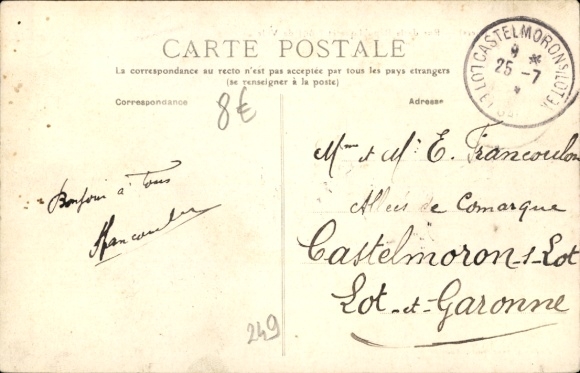 CARTE POSTALE
La correspondance au recto n'est pas acceptée par tous les pays étrangers
(se renseigner à la poste)
Correspondance
Adresse
8€
CASTELMORON S LOT
9 *
25 - 7
*
Bonjour à Tous
Francoulon
249
Mme et Mr E. Francoulon
Allées de Comarque
Castelmoron-s-Lot
Lot-et-Garonne